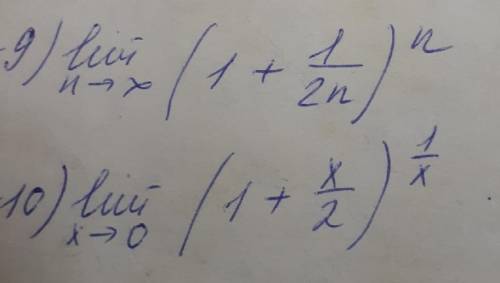 9) lim n→∞ (1 + 1/2n)^n
10) lim x→0 (1 + x/2)^1/x